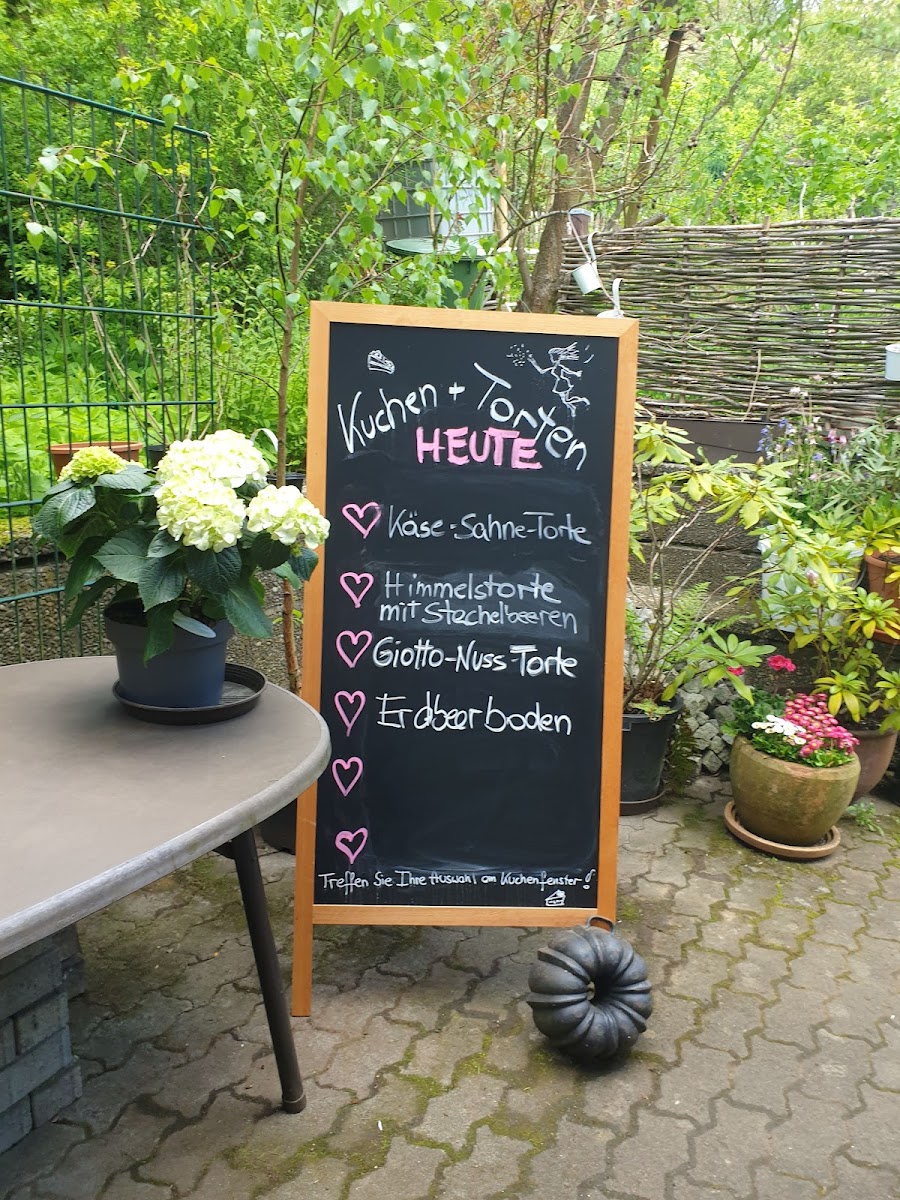 Kuchen + Torten
HEUTE
Käse-Sahne-Torte
Himmelstorte
mit Stachelbeeren
Giotto-Nuss-Torte
Erdbeerboden
Treffen Sie Ihre Auswahl am Kuchenfenster!